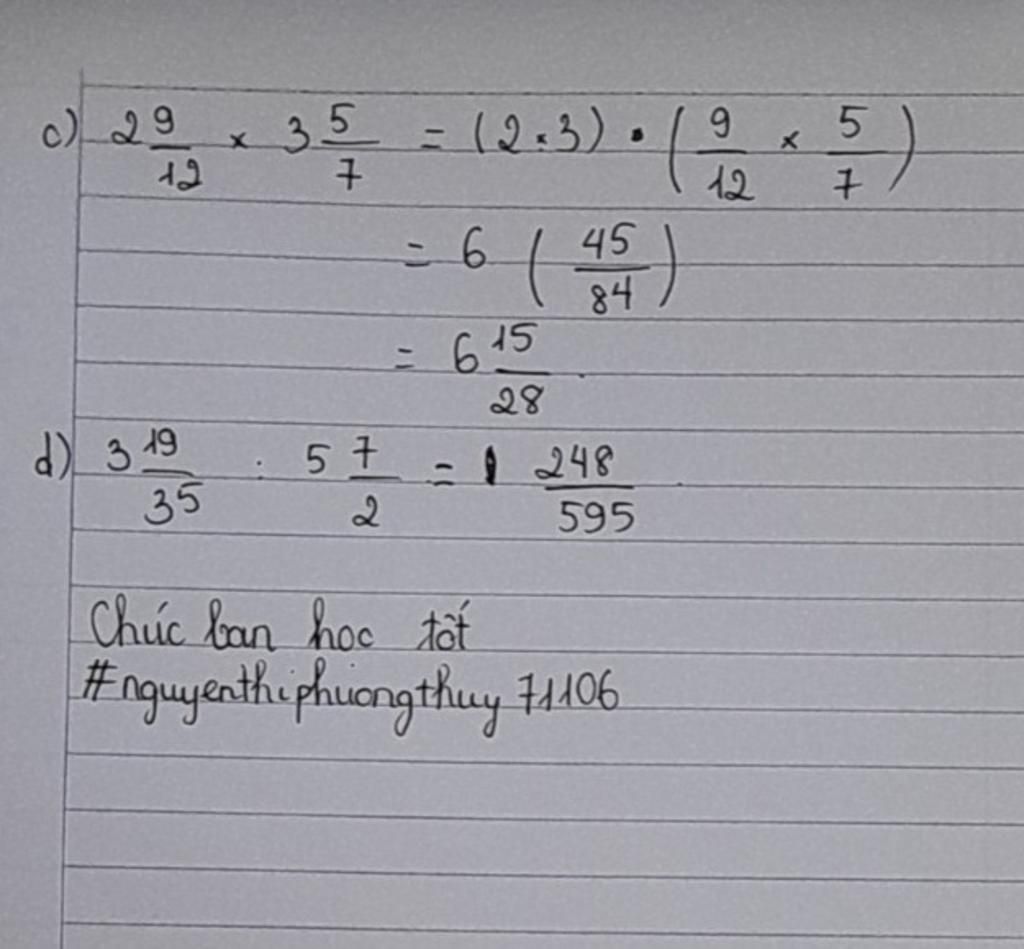 c) 2 9/12 × 3 5/7 = (2.3) . (9/12 × 5/7)
= 6 (45/84)
= 6 15/28 .
d) 3 19/35 : 5 7/2 = 1 248/595 .
Chúc ban hoc tốt
#nguyenthiphuongthuy71106